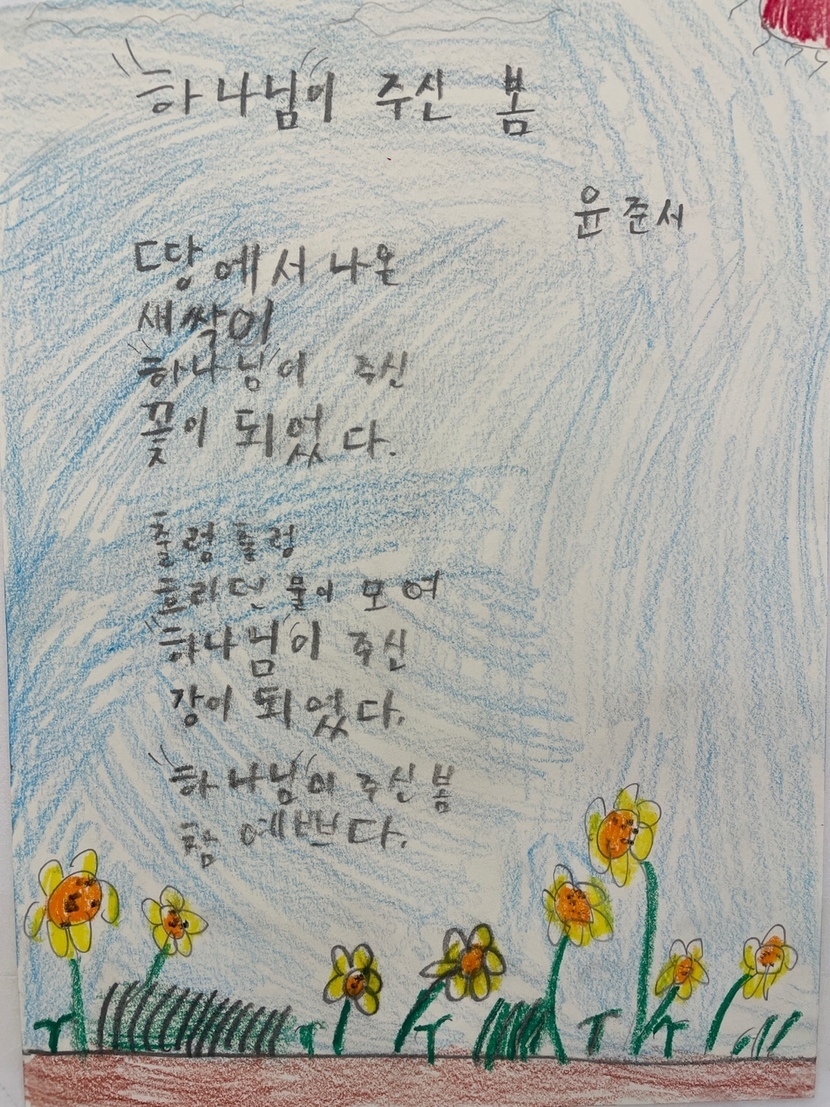 "하나님"이 주신 봄
윤준서
땅에서 나온
새싹이
"하나님"이 주신
꽃이 되었다.
출렁출렁
흐리던 물이 모여
"하나님"이 주신
강이 되었다.
"하나님"이 주신 봄
참 예쁘다.